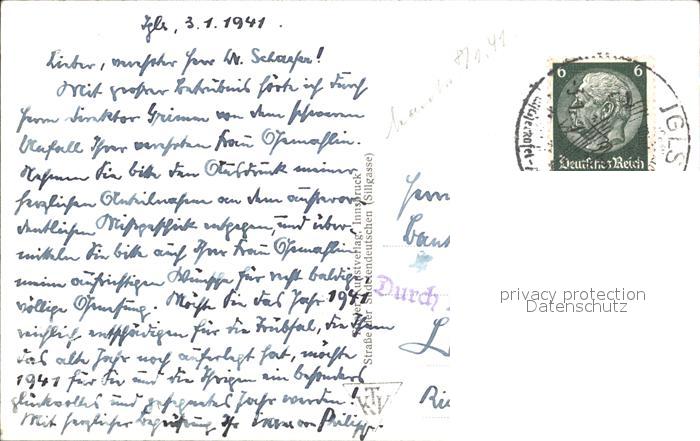 Igls, 3.1.1941.
Lieber, verehrter Herr Dr. Schaefer!
Mit großer Betrübnis hörte ich durch
Herrn Direktor Grimm von dem schweren
Unfall Ihrer verehrten Frau Gemahlin.
Nehmen Sie bitte den Ausdruck meiner
herzlichen Anteilnahme an dem außeror-
dentlichen Mißgeschick entgegen, und über-
mitteln Sie bitte auch Ihrer Frau Gemahlin
meine aufrichtigen Wünsche für recht baldige
völlige Genesung. Möchte Sie das Jahr 1941
reichlich entschädigen für die Trübsal, die Ihnen
das alte Jahr noch auferlegt hat, möchte
1941 für Sie und die Ihrigen ein besonders
glückvolles und gesegnetes Jahr werden!
Mit herzlicher Begrüßung Ihr Philipp.
8/1.41.
Kunstverlag, Innsbruck
Straße der Sudetendeutschen (Sillgasse)
6 6
Deutsches Reich
IGLS
Herrn
Durch
privacy protection
Datenschutz